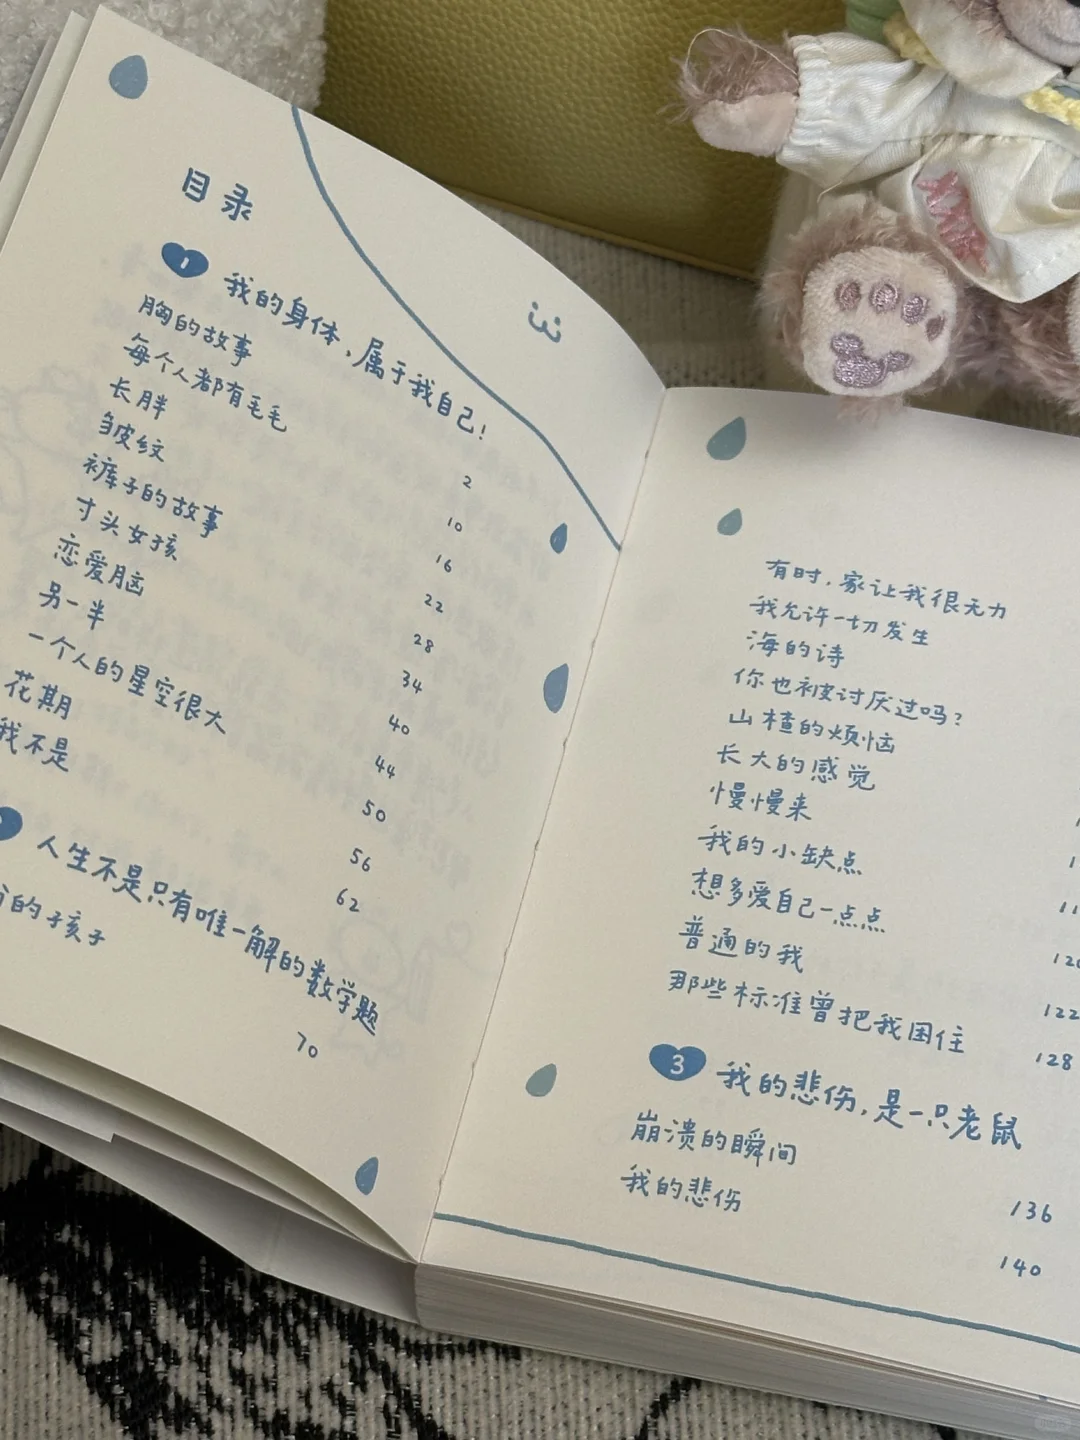 目录
1 我的身体，属于我自己！
胸的故事 2
每个人都有毛毛 10
长胖 16
皱纹 22
裤子的故事 28
寸头女孩 34
恋爱脑 40
另一半 44
一个人的星空很大 50
花期 56
我不是 62
人生不是只有唯一解的数学题
的孩子 70
有时，家让我很无力
我允许一切发生
海的诗
你也被讨厌过吗？
山楂的烦恼
长大的感觉
慢慢来
我的小缺点
想多爱自己一点点
普通的我
那些标准曾把我困住 128
3 我的悲伤，是一只老鼠
崩溃的瞬间 136
我的悲伤 140